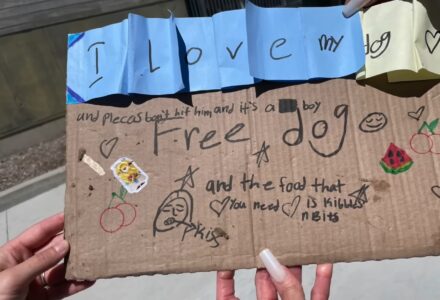 I Love my dog
and pleces Don't hit him and it's a boy
Free dog
and the food that
You need is KibblesnBits
Kis